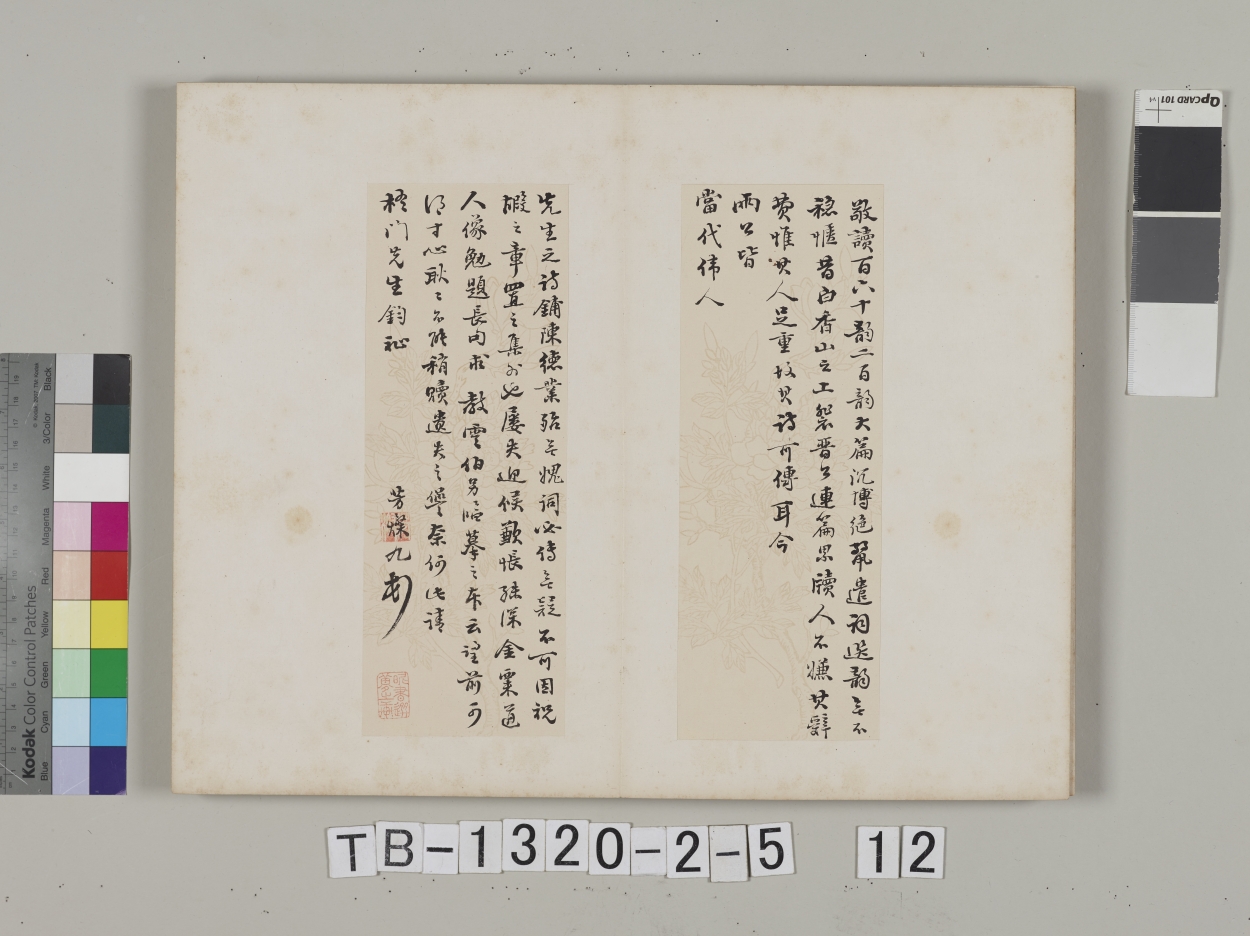 敬讀百六十韵二百韵大篇沉博絕麗遣詞選韵無不
穩愜昔白香山之上裴晉公連篇累牘人不嫌其辭
費惟其人足重故其詩可傳耳今
兩公皆
當代偉人
先生之詩鋪陳德業殆無愧詞必傳無疑不可因祝
嘏之章置之集外也屢失迎候歉悵殊深金粟道
人像勉題長句求 教雲伯另臨摹之本云望前可
得寸心耿耿不能稍贖遺失之愆奈何此請
梧門先生鈞祉
芳燦九頓
TB-1320-2-5 12
Kodak Color Control Patches
Blue
Cyan
Green
Yellow
Red
Magenta
White
3/Color
Black
QpCARD 101